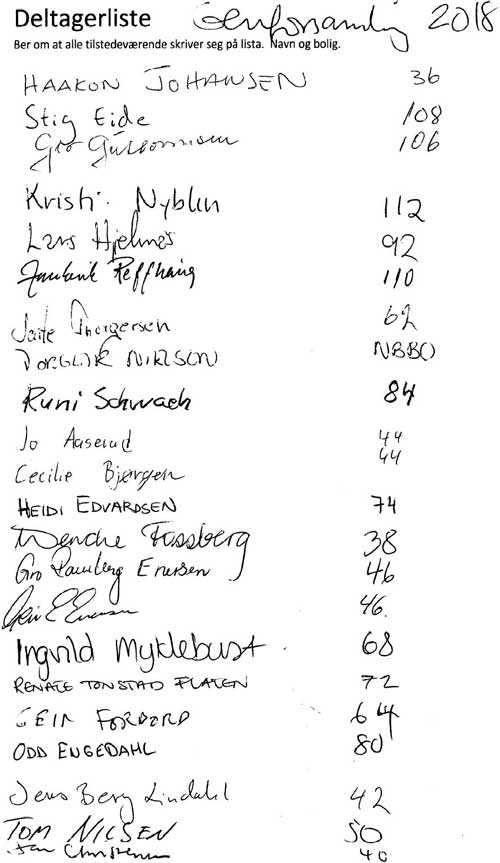 Deltagerliste Generforsamling 2018
Ber om at alle tilstedeværende skriver seg på lista. Navn og bolig.
HAAKON JOHANSEN 36
Stig Eide 108
Gro 106
Kristi Nyblin 112
Lars Hjelmes 92
110
Jarte Thorgersen 62
NIKLSON NBBO
Runi Schwach 84
Jo Aaserud 44
Cecilie Bjørgen 44
HEIDI EDVARDSEN 74
Wenche Fossberg 38
Gro Ramberg Eneresen 46
46.
Ingvild Myklebust 68
RENATE TONSTAD FLATEN 72
GEIR FORDORD 64
ODD ENGEDAHL 80
Jens Berg Lindahl 42
TOM NILSEN 50
Jan 40